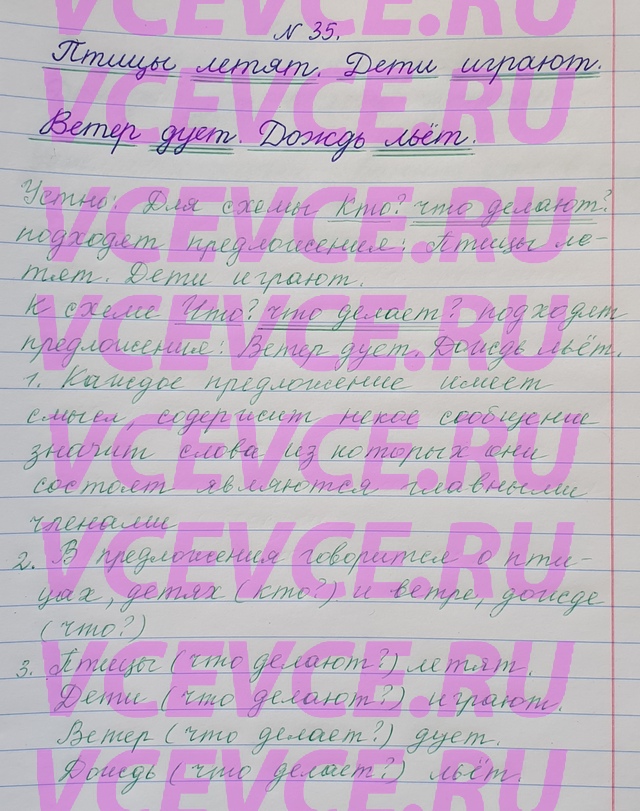 N 35.
Птицы летят. Дети играют.
Ветер дует. Дождь льёт.
Устно: Для схемы Кто? что делают?
подходят предложения: Птицы ле-
тят. Дети играют.
К схеме Что? что делает? подходят
предложения: Ветер дует. Дождь льёт.
1. Каждое предложение имеет
смысл, содержит некое сообщение
значит слова из которых они
состоят являются главными
членами
2. В предложения говорится о пти-
цах, детях (кто?) и ветре, дожде
(что?)
3. Птицы (что делают?) летят.
Дети (что делают?) играют.
Ветер (что делает?) дует.
Дождь (что делает?) льёт.
VCEVCE.RU
VCEVCE.RU
VCEVCE.RU
VCEVCE.RU
VCEVCE.RU
VCEVCE.RU
VCEVCE.RU
VCEVCE.RU